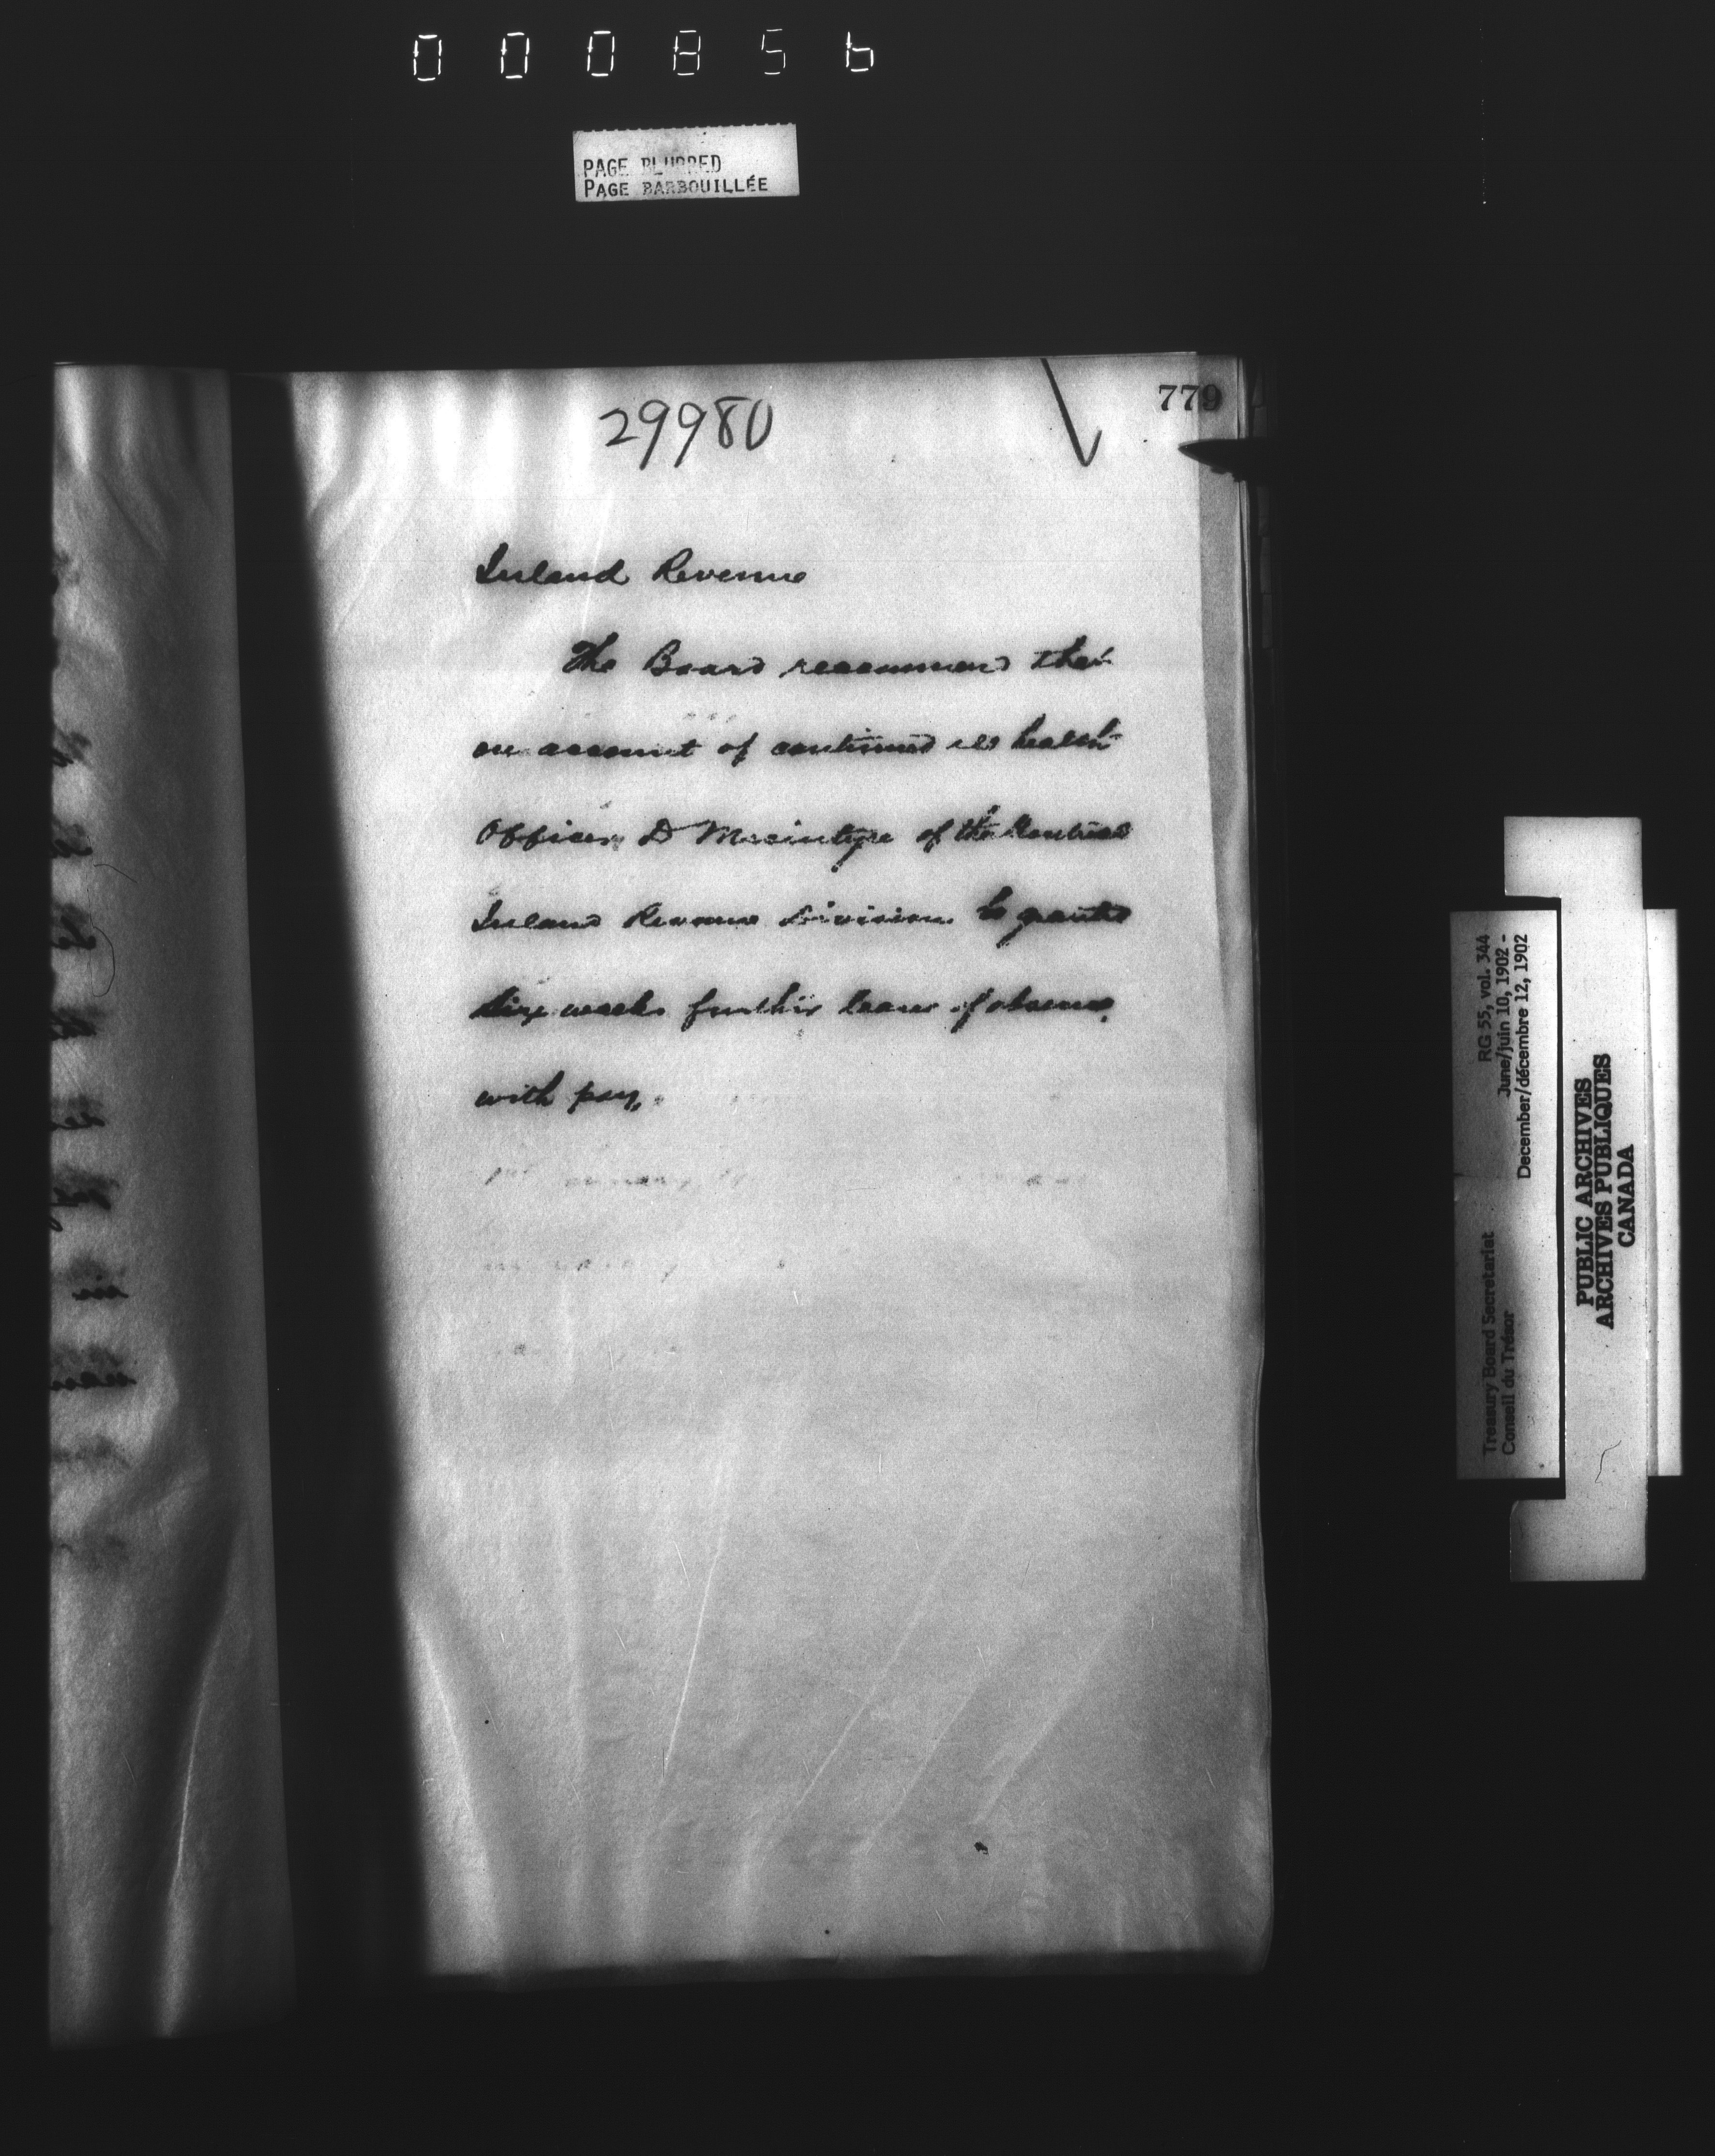 000856
PAGE BLURRED
PAGE BARBOUILLÉE
779
29980
Inland Revenue
The Board recommend that
on account of continued ill health
Officer D Macintyre of the Montreal
Inland Revenue Division be granted
six weeks further leave of absence
with pay.
RG 55, vol. 344
June/juin 10, 1902 -
December/décembre 12, 1902
Treasury Board Secretariat
Conseil du Trésor
PUBLIC ARCHIVES
ARCHIVES PUBLIQUES
CANADA